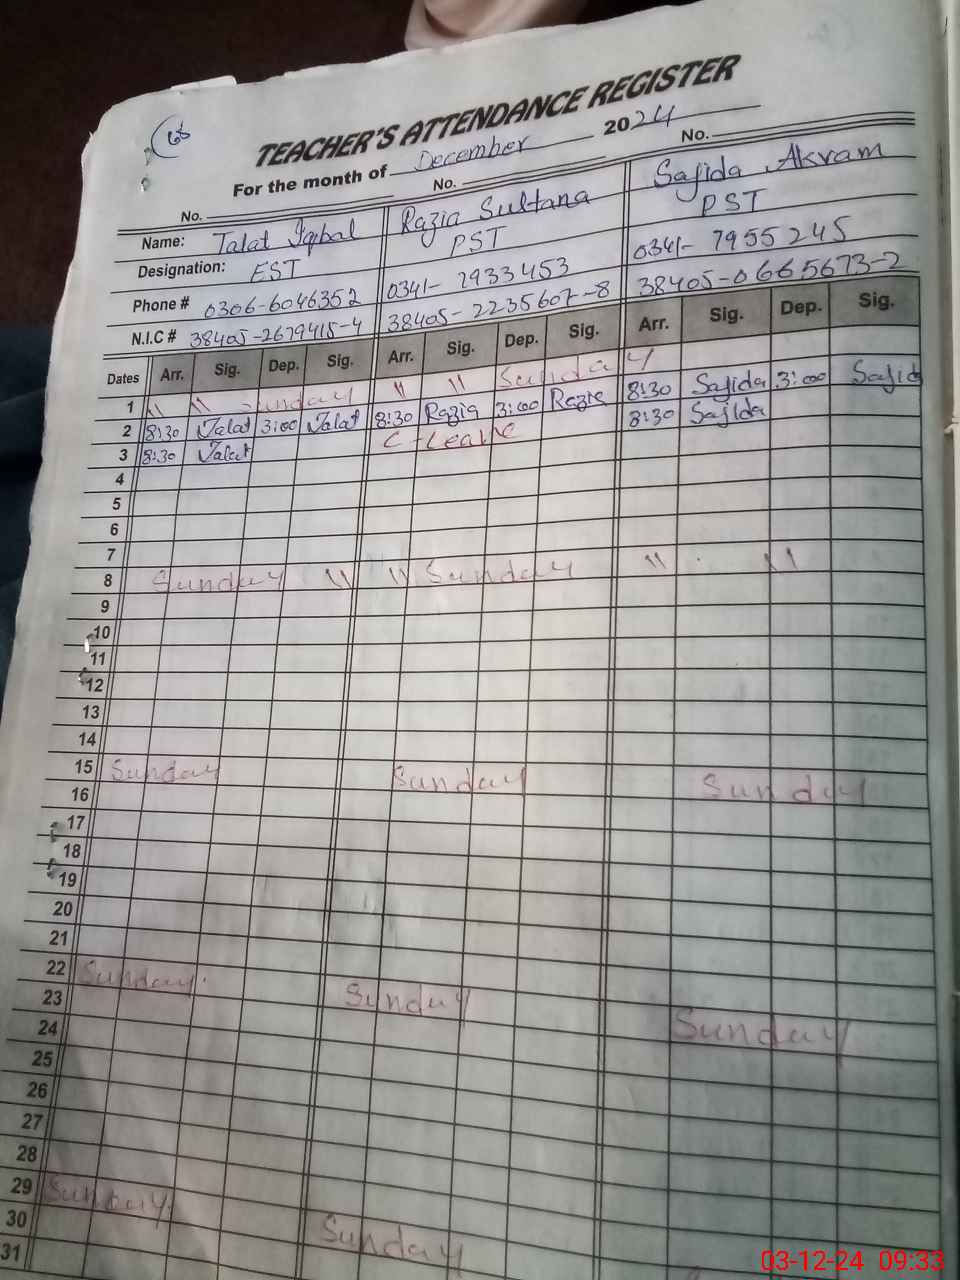 68
TEACHER'S ATTENDANCE REGISTER
For the month of December 2024
No. No. No.
Name: Talat Iqbal Razia Sultana Sajida Akram
Designation: EST PST PST
Phone # 0306-6046352 0341-7933453 0341-7955245
N.I.C # 38405-2679415-4 38405-2235607-8 38405-0665673-2
Dates Arr. Sig. Dep. Sig. Arr. Sig. Dep. Sig. Arr. Sig. Dep. Sig.
1 " " Sunday " " Sunday
2 8:30 Talat 3:00 Talat 8:30 Razia 3:00 Razia 8:30 Sajida 3:00 Sajid
3 8:30 Talat C-Leave 8:30 Sajida
4
5
6
7
8 Sunday " " Sunday " "
9
10
11
12
13
14
15 Sunday Sunday Sunday
16
17
18
19
20
21
22 Sunday. Sunday Sunday
23
24
25
26
27
28
29 Sunday. Sunday
30
31
03-12-24 09:33